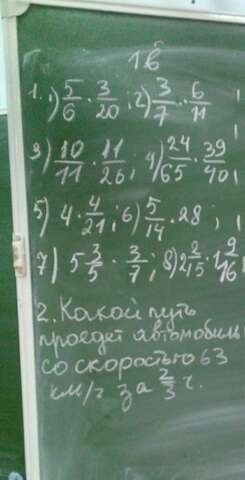 1 в
1. 1) 5/6 · 3/20 ; 2) 3/7 · 6/11 ;
3) 10/11 · 11/26 ; 4) 24/65 · 39/40 ,
5) 4 · 4/21 ; 6) 5/14 · 28 ;
7) 5 3/5 · 3/7 ; 8) 2 2/15 · 1 9/16
2. Какой путь
проедет автомобиль
со скоростью 63
км/ч за 2/3 ч.